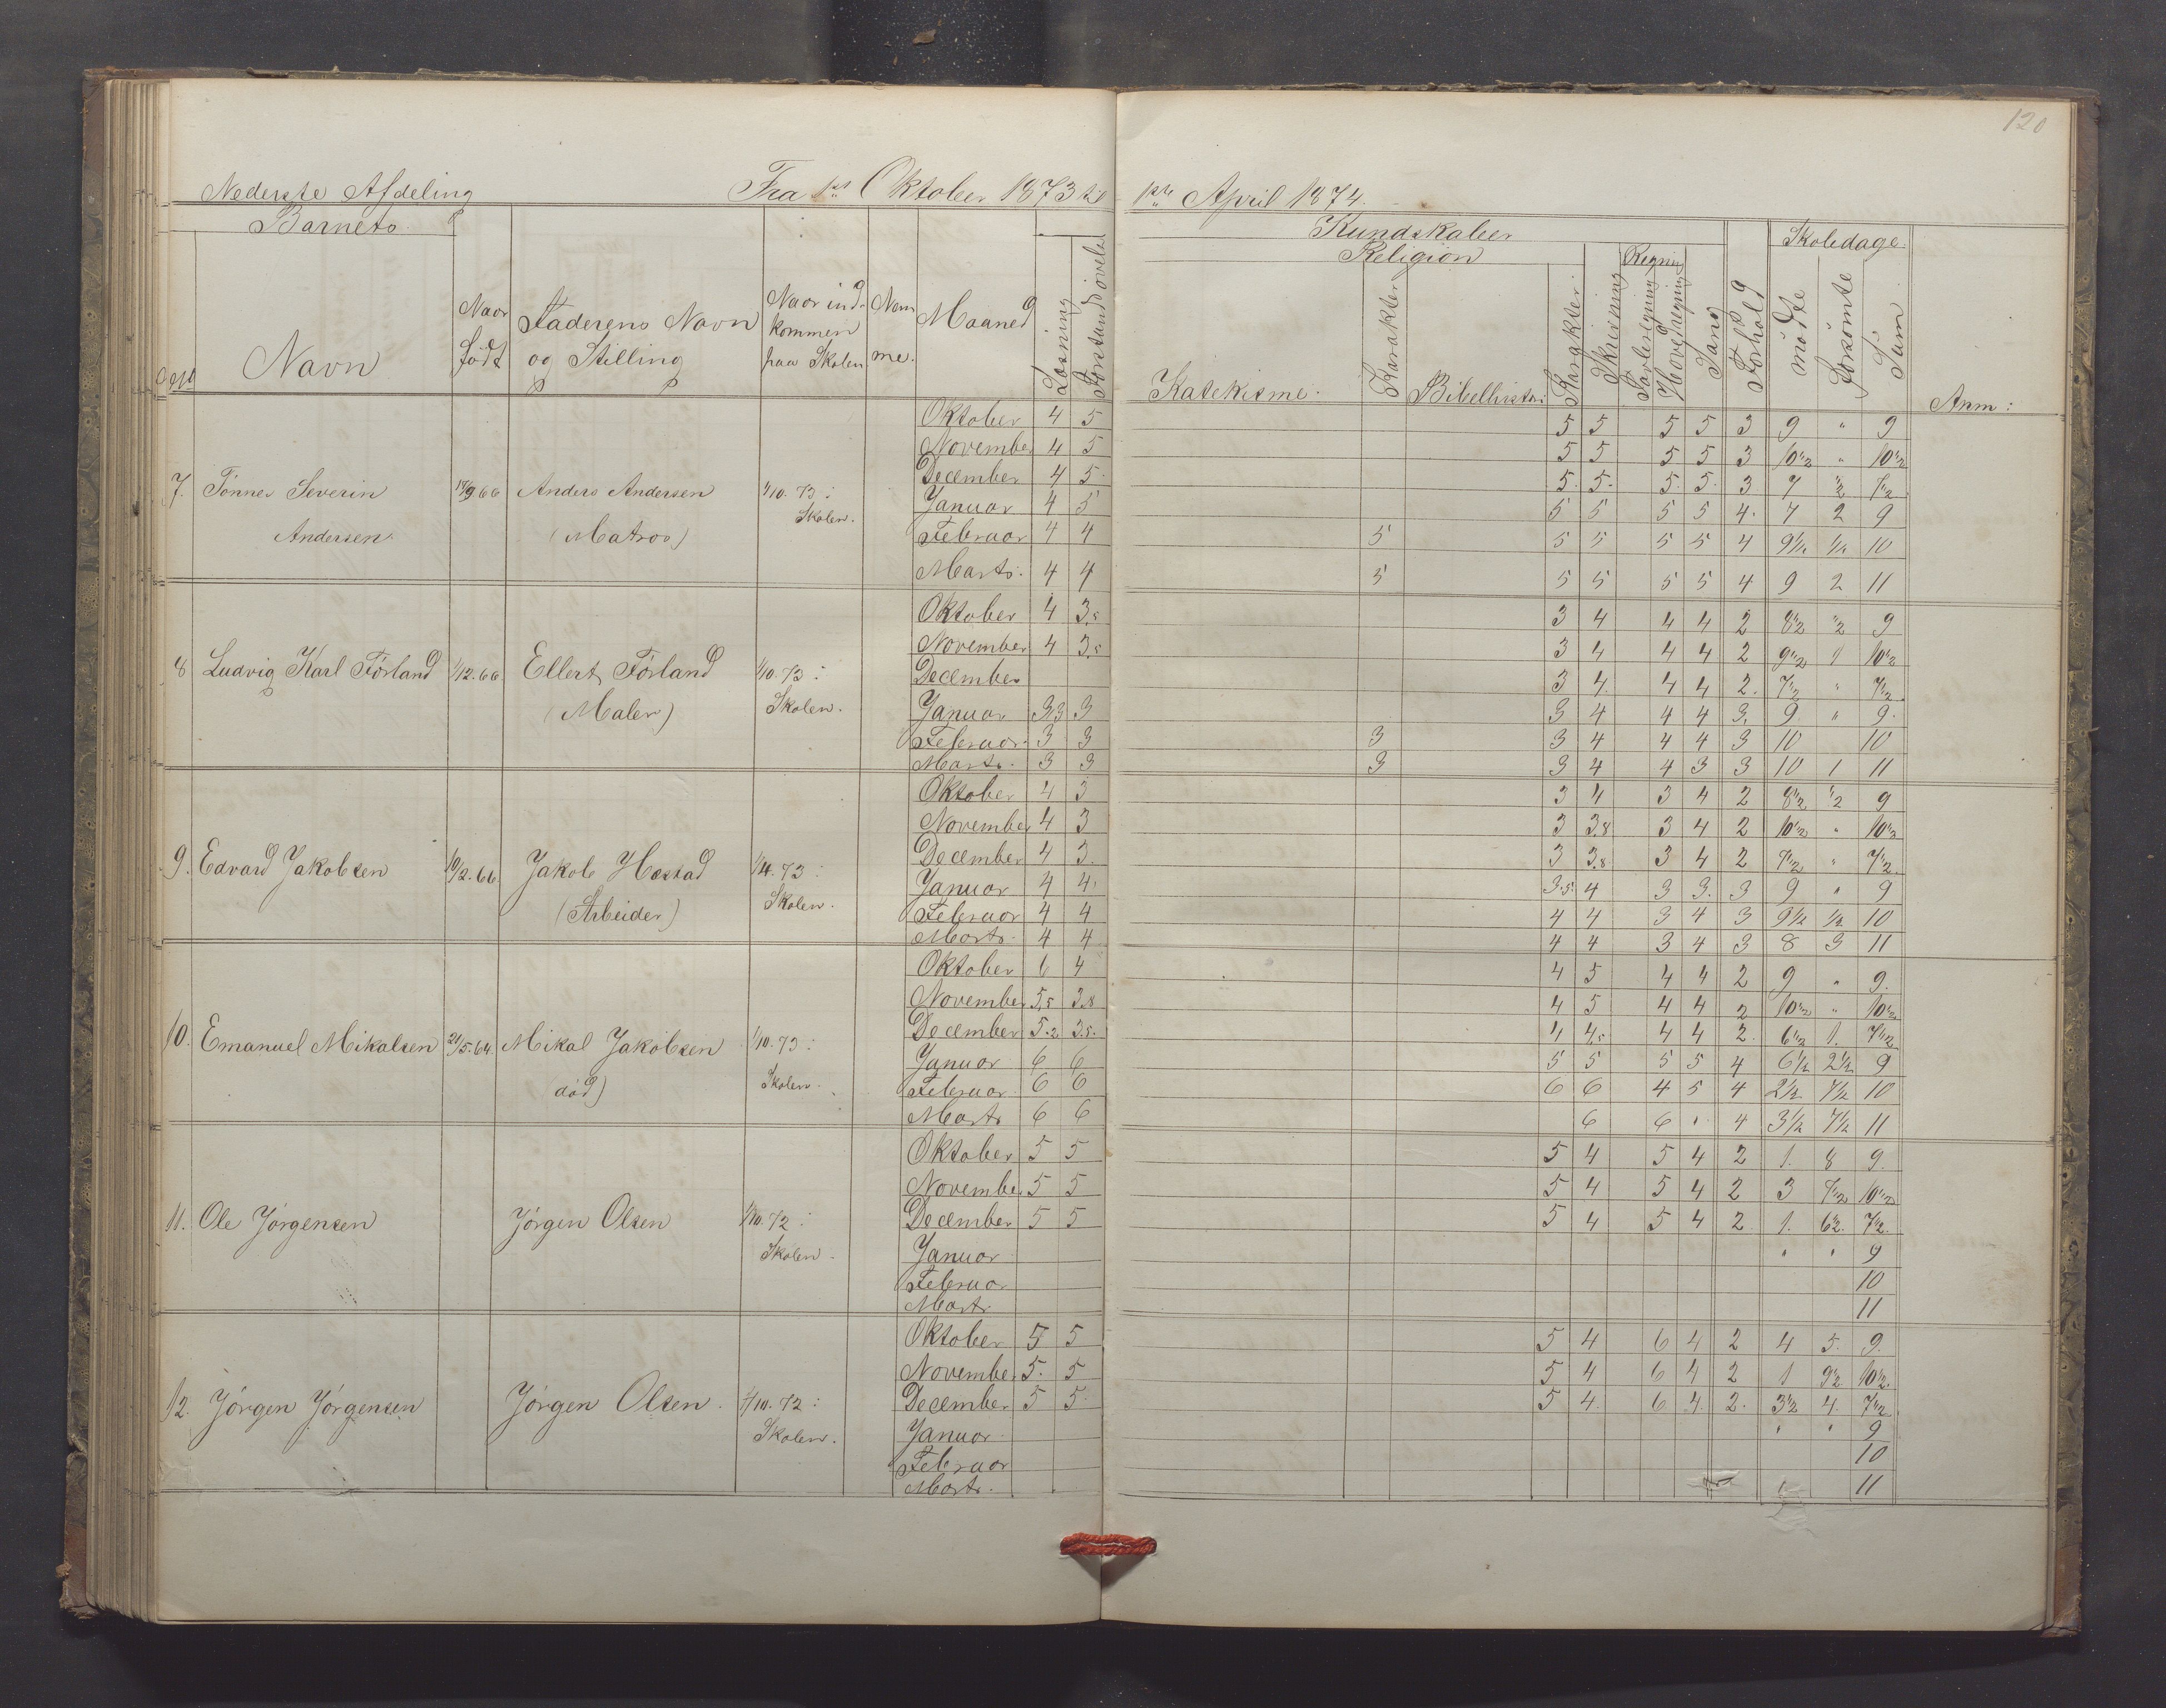 120
Nederste Afdeling Fra 1st Oktober 1873 til 1ste April 1874.
Barnets Kundskaber Skoledage.
Religion Regning
Navn Naar født Faderens Navn og Stilling Naar indkommen paa Skolen Nom me. Maaned Læsning Forstandsøvelse Katekisme. Karakter Bibelhistor: Karakter Skrivning Tavleregning Hovedregning Sang Forhold mödte forsömte Sum Anm:
Oktober 4 5 5 5 5 5 3 9 " 9
November 4 5 5 5 5 5 3 10 1/2 " 10 1/2
December 4 5 5. 5. 5. 5. 3 7 1/2 7 1/2
7. Tönnes Severin 9.66 Anders Andersen 1/10. 73:
Januar 4 5 5 5 5 5 4. 7 2 9
Skolen.
Andersen. (Matros)
Februar 4 4 5 5 5 5 5 4 9 1/2 1/2 10
Marts. 4 4 5 5 5 5 5 4 9 2 11
Oktober 4 3,5 3 4 4 4 2 8 1/2 1/2 9
November 4 3,5 3 4 4 4 2 9 1/2 1 10 1/2
8 Ludvig Karl Förland 1/12.66 Ellert Förland 1/10. 73:
December 3 4. 4 4 2. 7 1/2 " 7 1/2
(Maler) Skolen.
Januar 3,3 3 3 4 4 4 3, 9 " 9.
Februar. 3 3 3 3 4 4 4 3 10 10
Marts. 3 3 3 3 4 4 3 3 10 1 11
Oktober 4 3 3 4 3 4 2 8 1/2 1/2 9
November 4 3 3 3,8 3 4 2 10 1/2 " 10 1/2
December 4 3. 3 3,8 3 4 2 7 1/2 " 7 1/2
9. Edvard Jakobsen 10/2.66. Jakob Hæstad 73:
Januar 4 4. 3.5. 4 3 3. 3 9 " 9
(Arbeider) Skolen.
Februar 4 4 4 4 3 4 3 9 1/2 1/2 10
Marts. 4 4 4 4 3 4 3 8 3 11
Oktober 6 4 4 5 4 4 2 9 " 9.
November 5,5 3,8 4 5 4 4 2 10 1/2 " 10 1/2
December 5.2 3.5. 4 4,5 4 4 2. 6 1/2 1. 7 1/2
10. Emanuel Mikalsen 21/5.64. Mikal Jakobsen 1/10. 73:
Januar 6 6 5 5 5 5 4 6 1/2 2 1/2 9
död) Skolen.
Februar 6 6 6 6 4 5 4 2 1/2 7 1/2 10
Marts 6 6 6 6 4 3 1/2 7 1/2 11
Oktober 5 5 5 4 5 4 2 1. 8 9.
November 5 5 5 4 5 4 2 3 7 1/2 10 1/2
11. Ole Jörgensen Jörgen Olsen 1/10. 72:
December 5 5 5 4 5 4 2. 1. 6 1/2. 7 1/2.
Skolen.
Januar " " 9
Februar 10
Marts 11
Oktober 5 5 5 4 6 4 2 4 5. 9.
November 5. 5 5 4 6 4 2 1 9 1/2 10 1/2.
12. Jörgen Jörgensen Jörgen Olsen. 1/10. 72:
December 5 5. 5 4. 6 4. 2. 3 1/2 4. 7 1/2.
Skolen.
Januar " " 9
Februar 10
Marts. 11